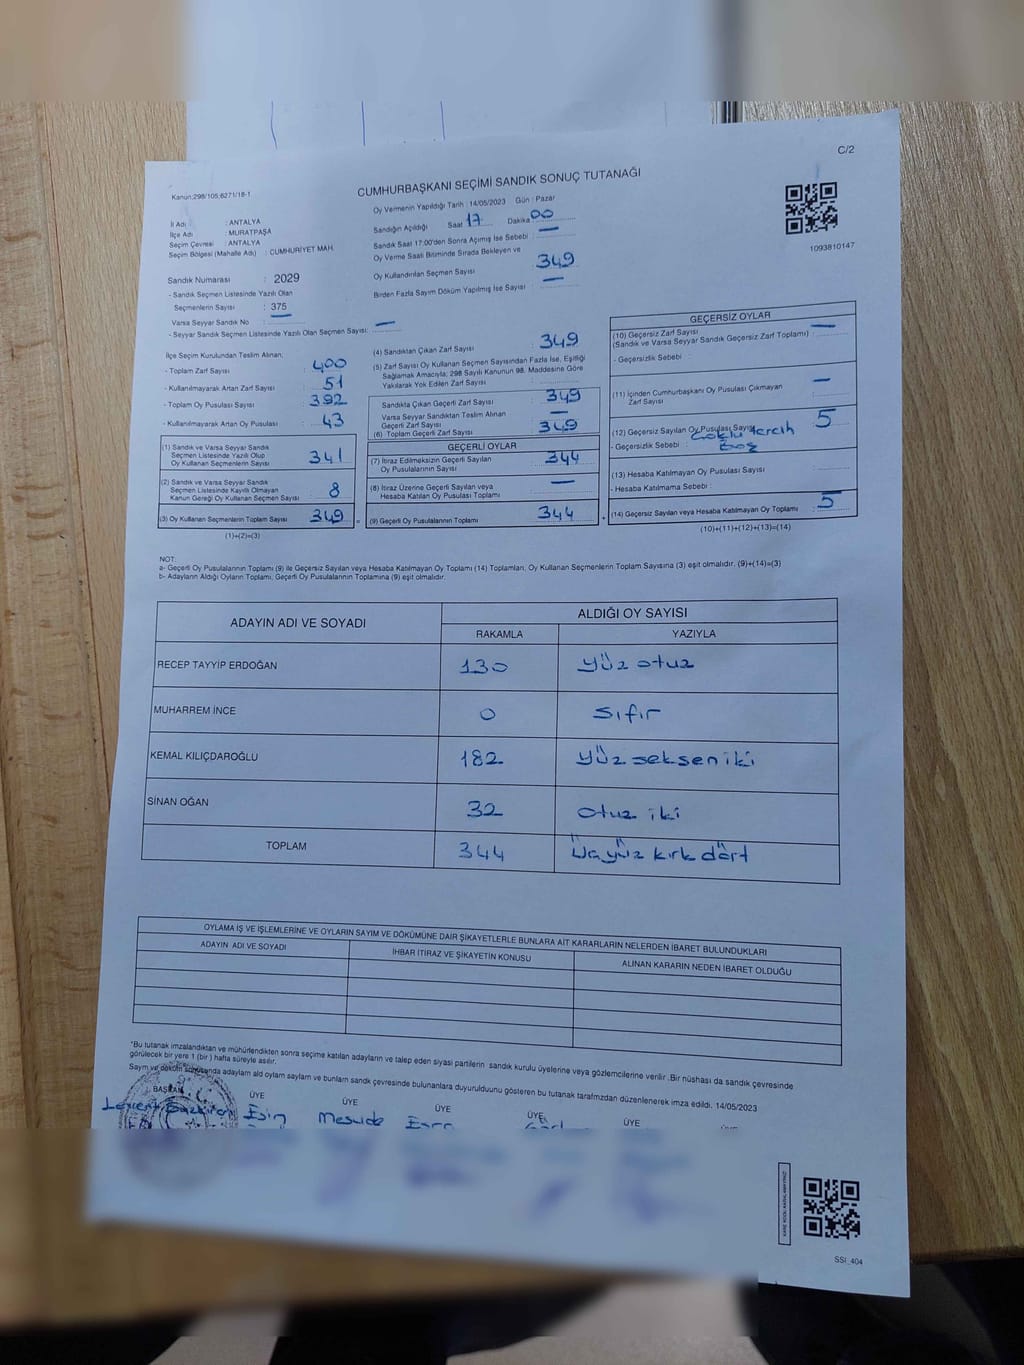 C/2
Kanun:298/105;6271/18-1
CUMHURBAŞKANI SEÇİMİ SANDIK SONUÇ TUTANAĞI
1093810147
İl Adı : ANTALYA
İlçe Adı : MURATPAŞA
Seçim Çevresi : ANTALYA
Seçim Bölgesi (Mahalle Adı) : CUMHURİYET MAH.
Oy Vermenin Yapıldığı Tarih : 14/05/2023 Gün : Pazar
Sandığın Açıldığı Saat 17 Dakika 00
Sandık Saat 17:00'den Sonra Açımış İse Sebebi : —
Oy Verme Saati Bitiminde Sırada Bekleyen ve
Oy Kullandırılan Seçmen Sayısı : 349
Birden Fazla Sayım Döküm Yapılmış İse Sayısı : —
Sandık Numarası : 2029
- Sandık Seçmen Listesinde Yazılı Olan
Seçmenlerin Sayısı : 375
Varsa Seyyar Sandık No : —
- Seyyar Sandık Seçmen Listesinde Yazılı Olan Seçmen Sayısı: —
İlçe Seçim Kurulundan Teslim Alınan;
- Toplam Zarf Sayısı : 400
- Kullanılmayarak Artan Zarf Sayısı : 51
- Toplam Oy Pusulası Sayısı : 392
- Kullanılmayarak Artan Oy Pusulası : 43
(1) Sandık ve Varsa Seyyar Sandık
Seçmen Listesinde Yazılı Olup
Oy Kullanan Seçmenlerin Sayısı : 341
(2) Sandık ve Varsa Seyyar Sandık
Seçmen Listesinde Kayıtlı Olmayan
Kanun Gereği Oy Kullanan Seçmen Sayısı : 8
(3) Oy Kullanan Seçmenlerin Toplam Sayısı : 349
(1)+(2)=(3)
(4) Sandıktan Çıkan Zarf Sayısı : 349
(5) Zarf Sayısı Oy Kullanan Seçmen Sayısından Fazla İse, Eşitliği
Sağlamak Amacıyla; 298 Sayılı Kanunun 98. Maddesine Göre
Yakılarak Yok Edilen Zarf Sayısı
Sandıkta Çıkan Geçerli Zarf Sayısı : 349
Varsa Seyyar Sandıktan Teslim Alınan
Geçerli Zarf Sayısı : —
(6) Toplam Geçerli Zarf Sayısı : 349
GEÇERLİ OYLAR
(7) İtiraz Edilmeksizin Geçerli Sayılan
Oy Pusulalarının Sayısı : 344
(8) İtiraz Üzerine Geçerli Sayılan veya
Hesaba Katılan Oy Pusulası Toplamı : —
(9) Geçerli Oy Pusulalarının Toplamı : 344
GEÇERSİZ OYLAR
(10) Geçersiz Zarf Sayısı
(Sandık ve Varsa Seyyar Sandık Geçersiz Zarf Toplamı) : —
- Geçersizlik Sebebi :
(11) İçinden Cumhurbaşkanı Oy Pusulası Çıkmayan
Zarf Sayısı : —
(12) Geçersiz Sayılan Oy Pusulası Sayısı : 5
- Geçersizlik Sebebi : Çoklu tercih
Boş
(13) Hesaba Katılmayan Oy Pusulası Sayısı
- Hesaba Katılmama Sebebi :
(14) Geçersiz Sayılan veya Hesaba Katılmayan Oy Toplamı : 5
(10)+(11)+(12)+(13)=(14)
NOT:
a- Geçerli Oy Pusulalarının Toplamı (9) ile Geçersiz Sayılan veya Hesaba Katılmayan Oy Toplamı (14) Toplamları, Oy Kullanan Seçmenlerin Toplam Sayısına (3) eşit olmalıdır. (9)+(14)=(3)
b- Adayların Aldığı Oyların Toplamı; Geçerli Oy Pusulalarının Toplamına (9) eşit olmalıdır.
ADAYIN ADI VE SOYADI
ALDIĞI OY SAYISI
RAKAMLA YAZIYLA
RECEP TAYYİP ERDOĞAN 130 yüz otuz
MUHARREM İNCE 0 sıfır
KEMAL KILIÇDAROĞLU 182 yüz seksen iki
SİNAN OĞAN 32 otuz iki
TOPLAM 344 üçyüz kırk dört
OYLAMA İŞ VE İŞLEMLERİNE VE OYLARIN SAYIM VE DÖKÜMÜNE DAİR ŞİKAYETLERLE BUNLARA AİT KARARLARIN NELERDEN İBARET BULUNDUKLARI
ADAYIN ADI VE SOYADI İHBAR İTİRAZ VE ŞİKAYETİN KONUSU ALINAN KARARIN NEDEN İBARET OLDUĞU
*Bu tutanak imzalandıktan ve mühürlendikten sonra seçime katılan adayların ve talep eden siyasi partilerin sandık kurulu üyelerine veya gözlemcilerine verilir .Bir nüshası da sandık çevresinde
görülecek bir yere 1 (bir ) hafta süreyle asılır.
Sayım ve döküm sonucunda adayların ald oyların sayların ve bunların sandk çevresinde bulunanlara duyurulduunu gösteren bu tutanak tarafmzdan düzenlenerek imza edildi. 14/05/2023
BAŞKAN ÜYE ÜYE ÜYE ÜYE ÜYE
Levent Esin Mesude Esra
SSİ_404